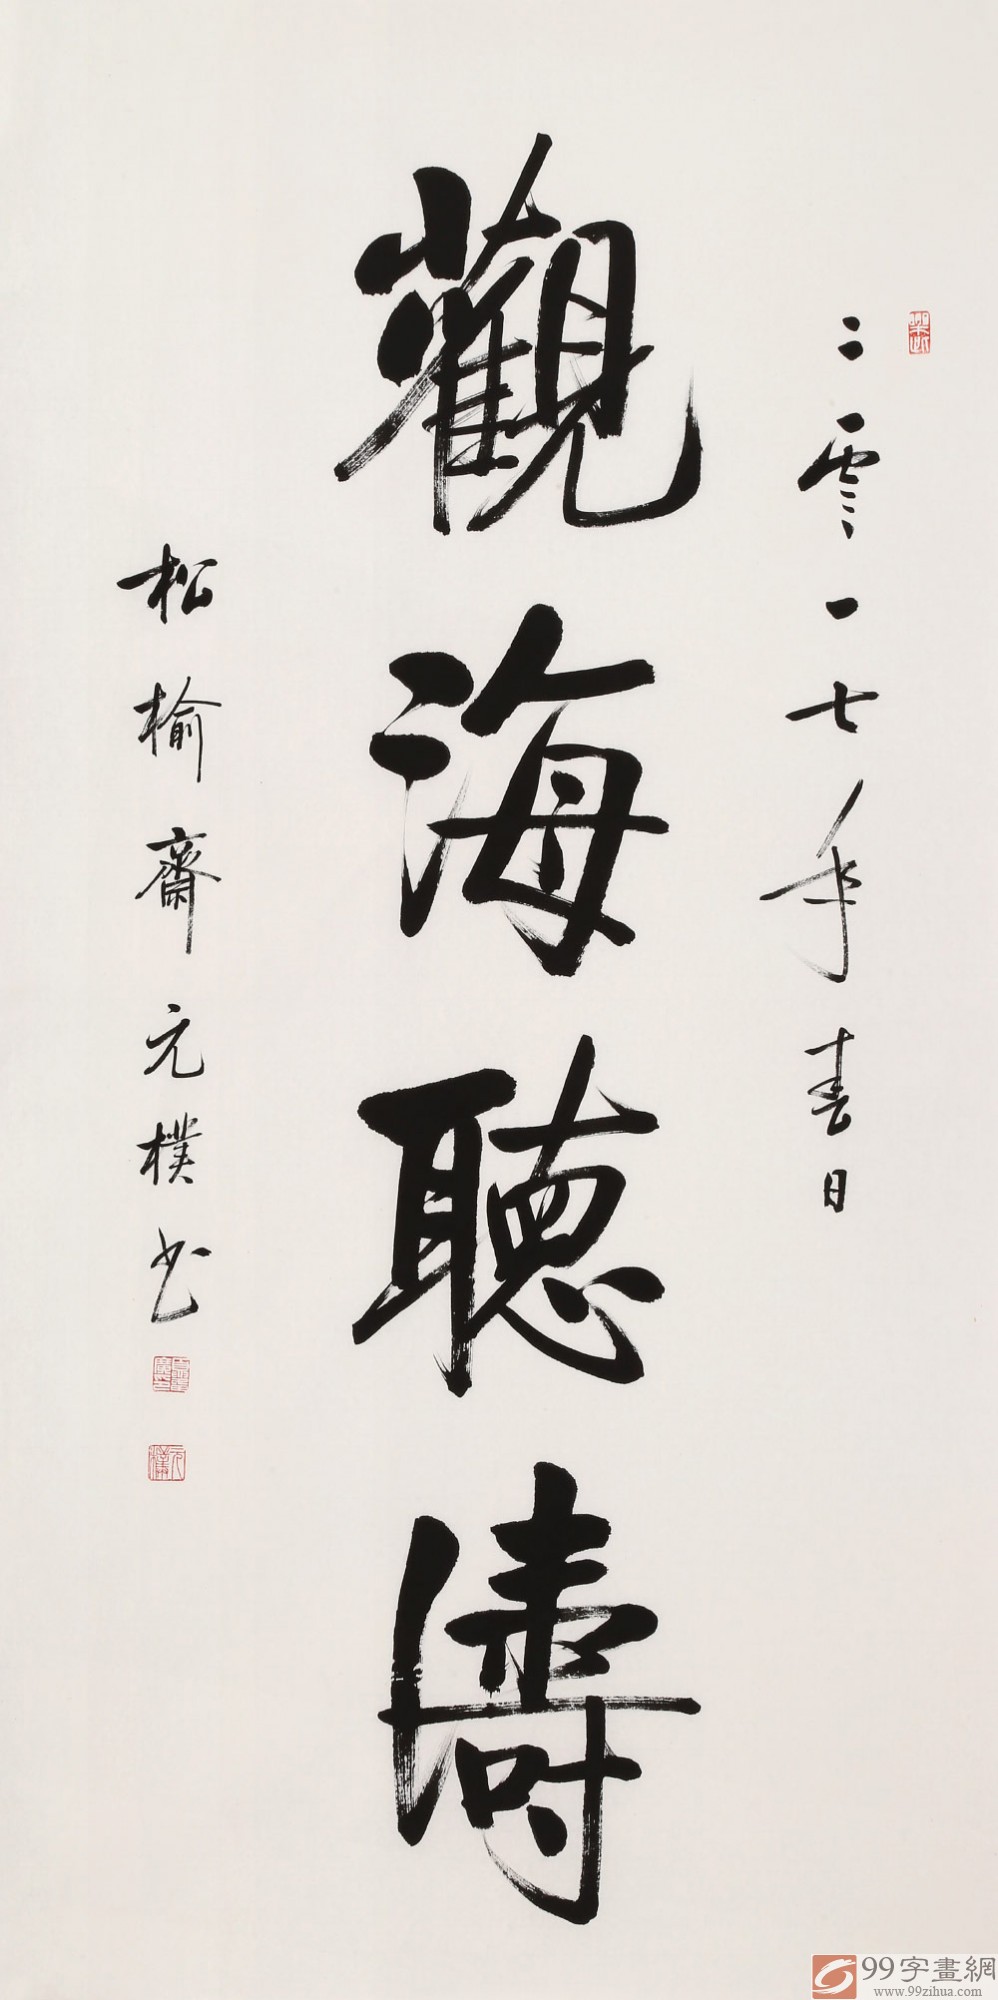 二零一七年春日
觀海聽濤
松榆齋元樸书
元樸
99字畫網
www.99zihua.com